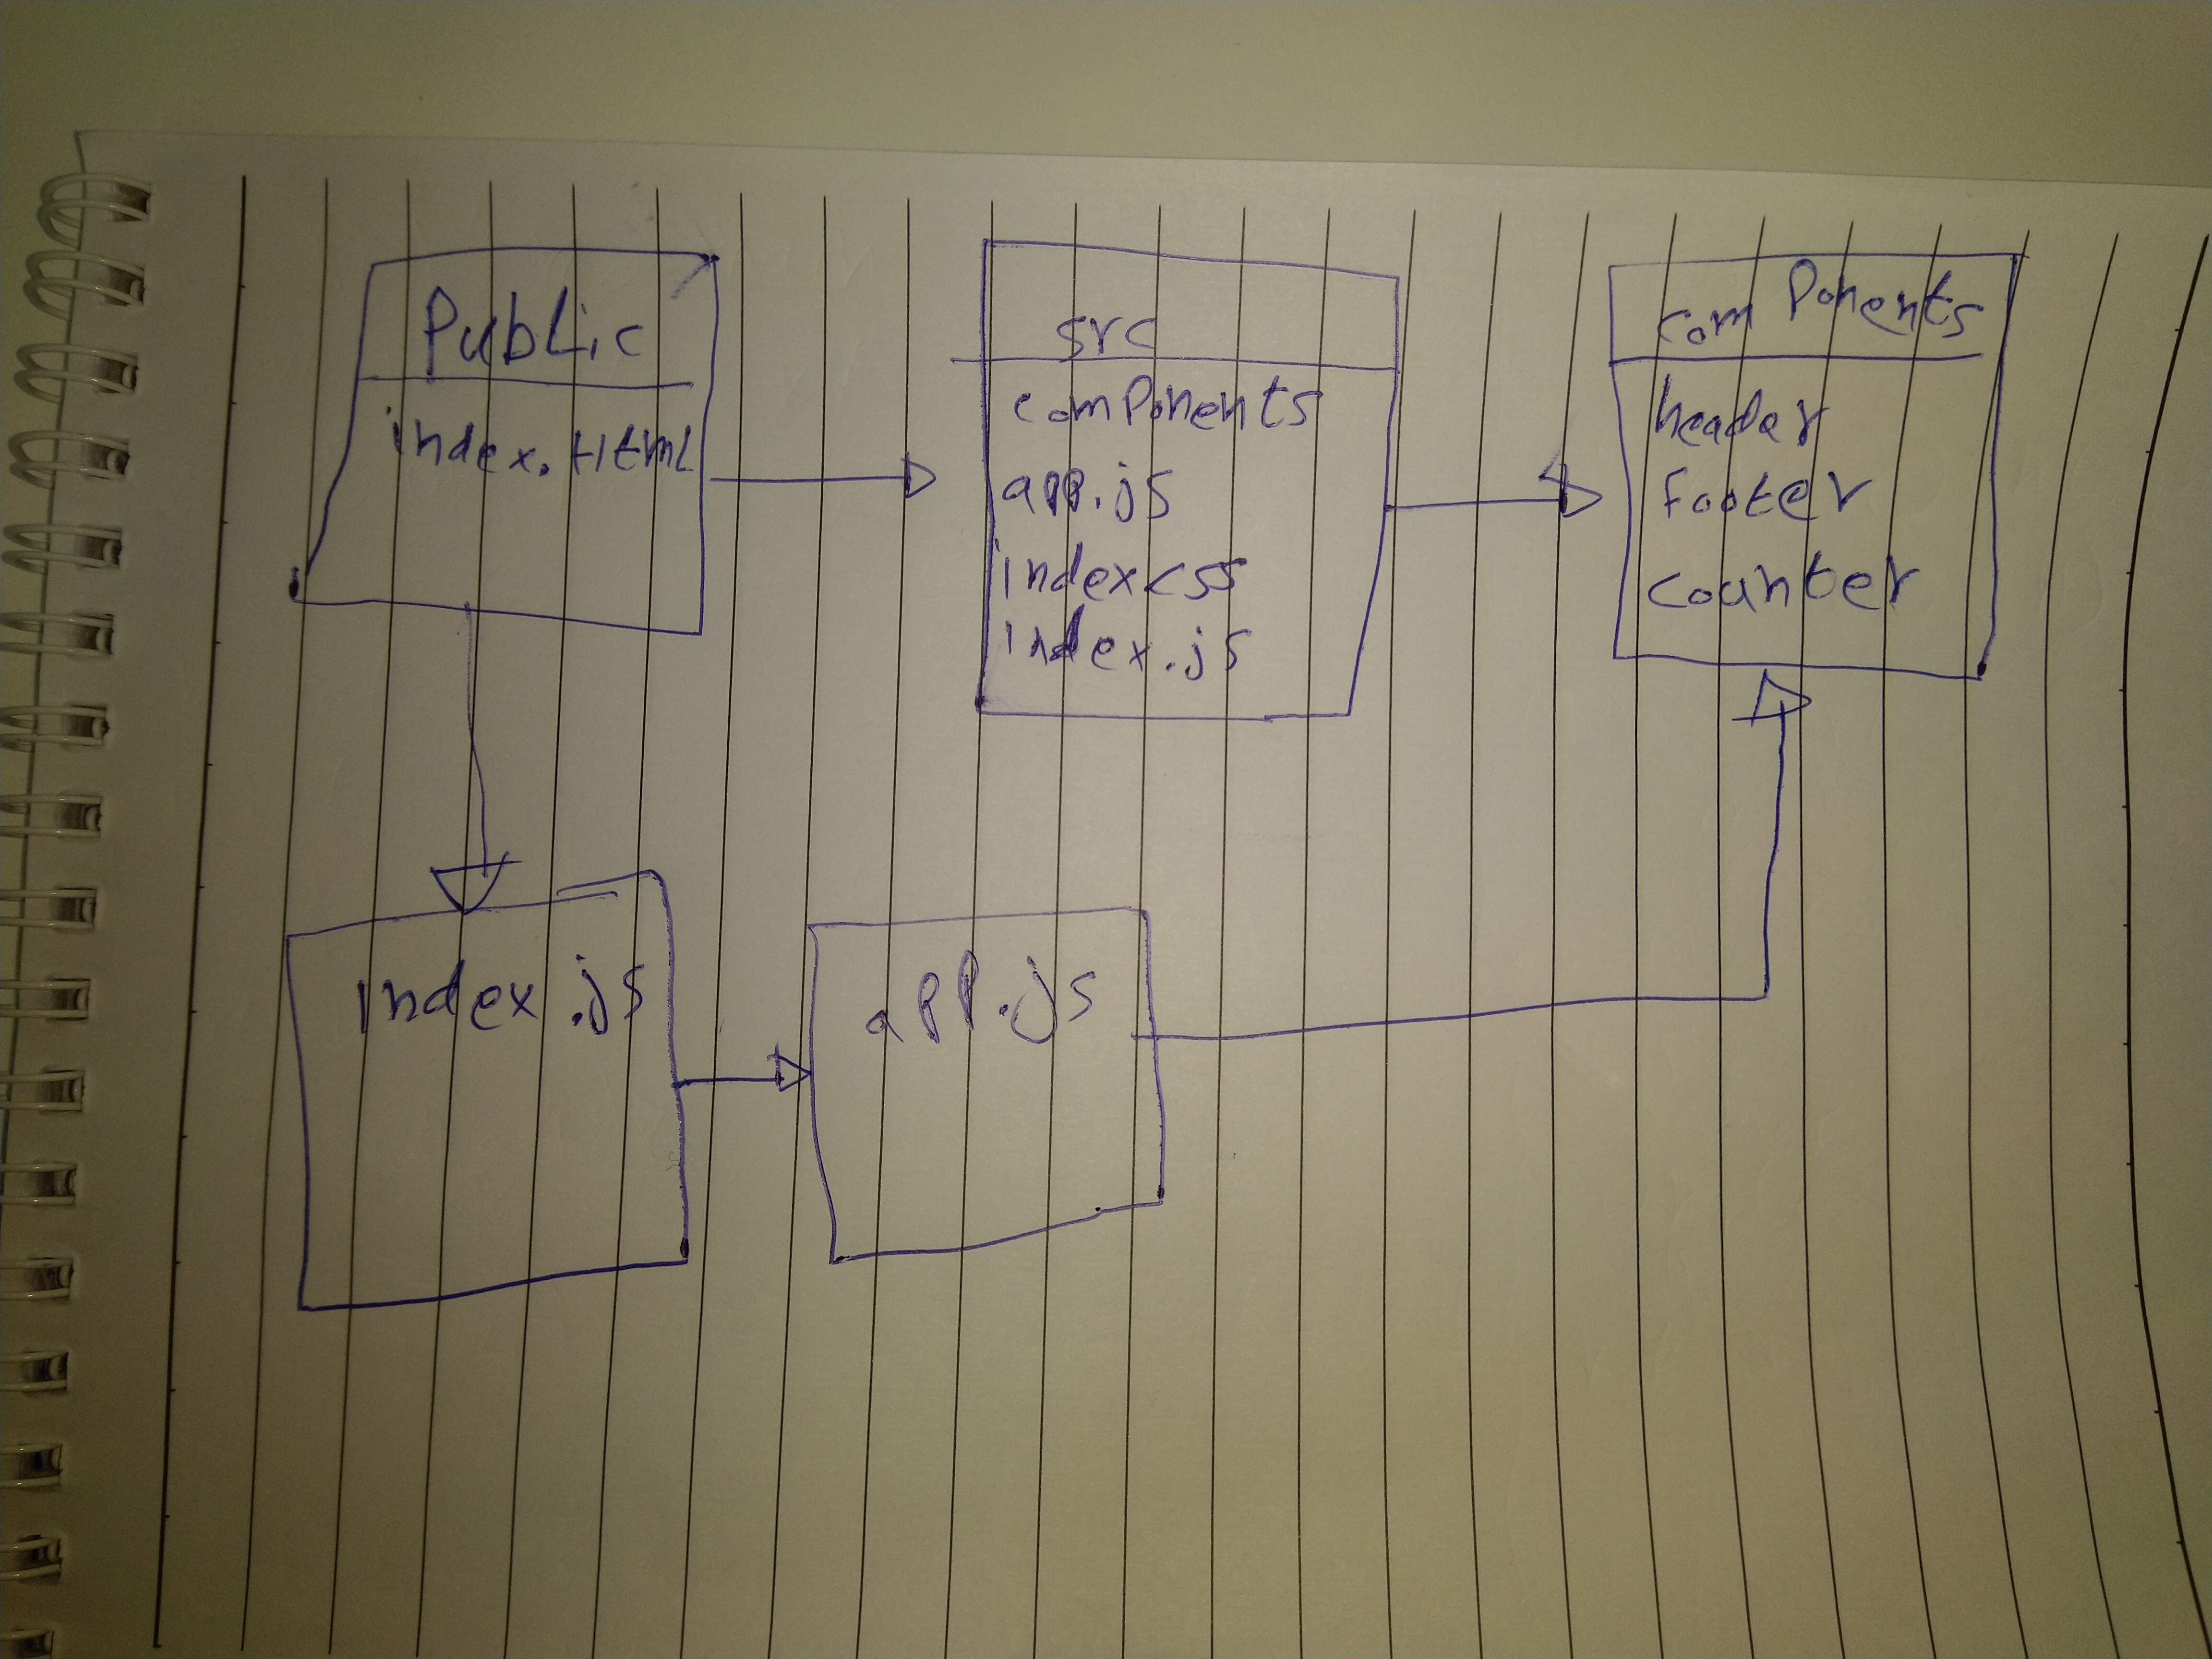 Public
index.Html
src
components
app.js
indexcss
index.js
comPonents
header
footer
counter
index.js
app.js